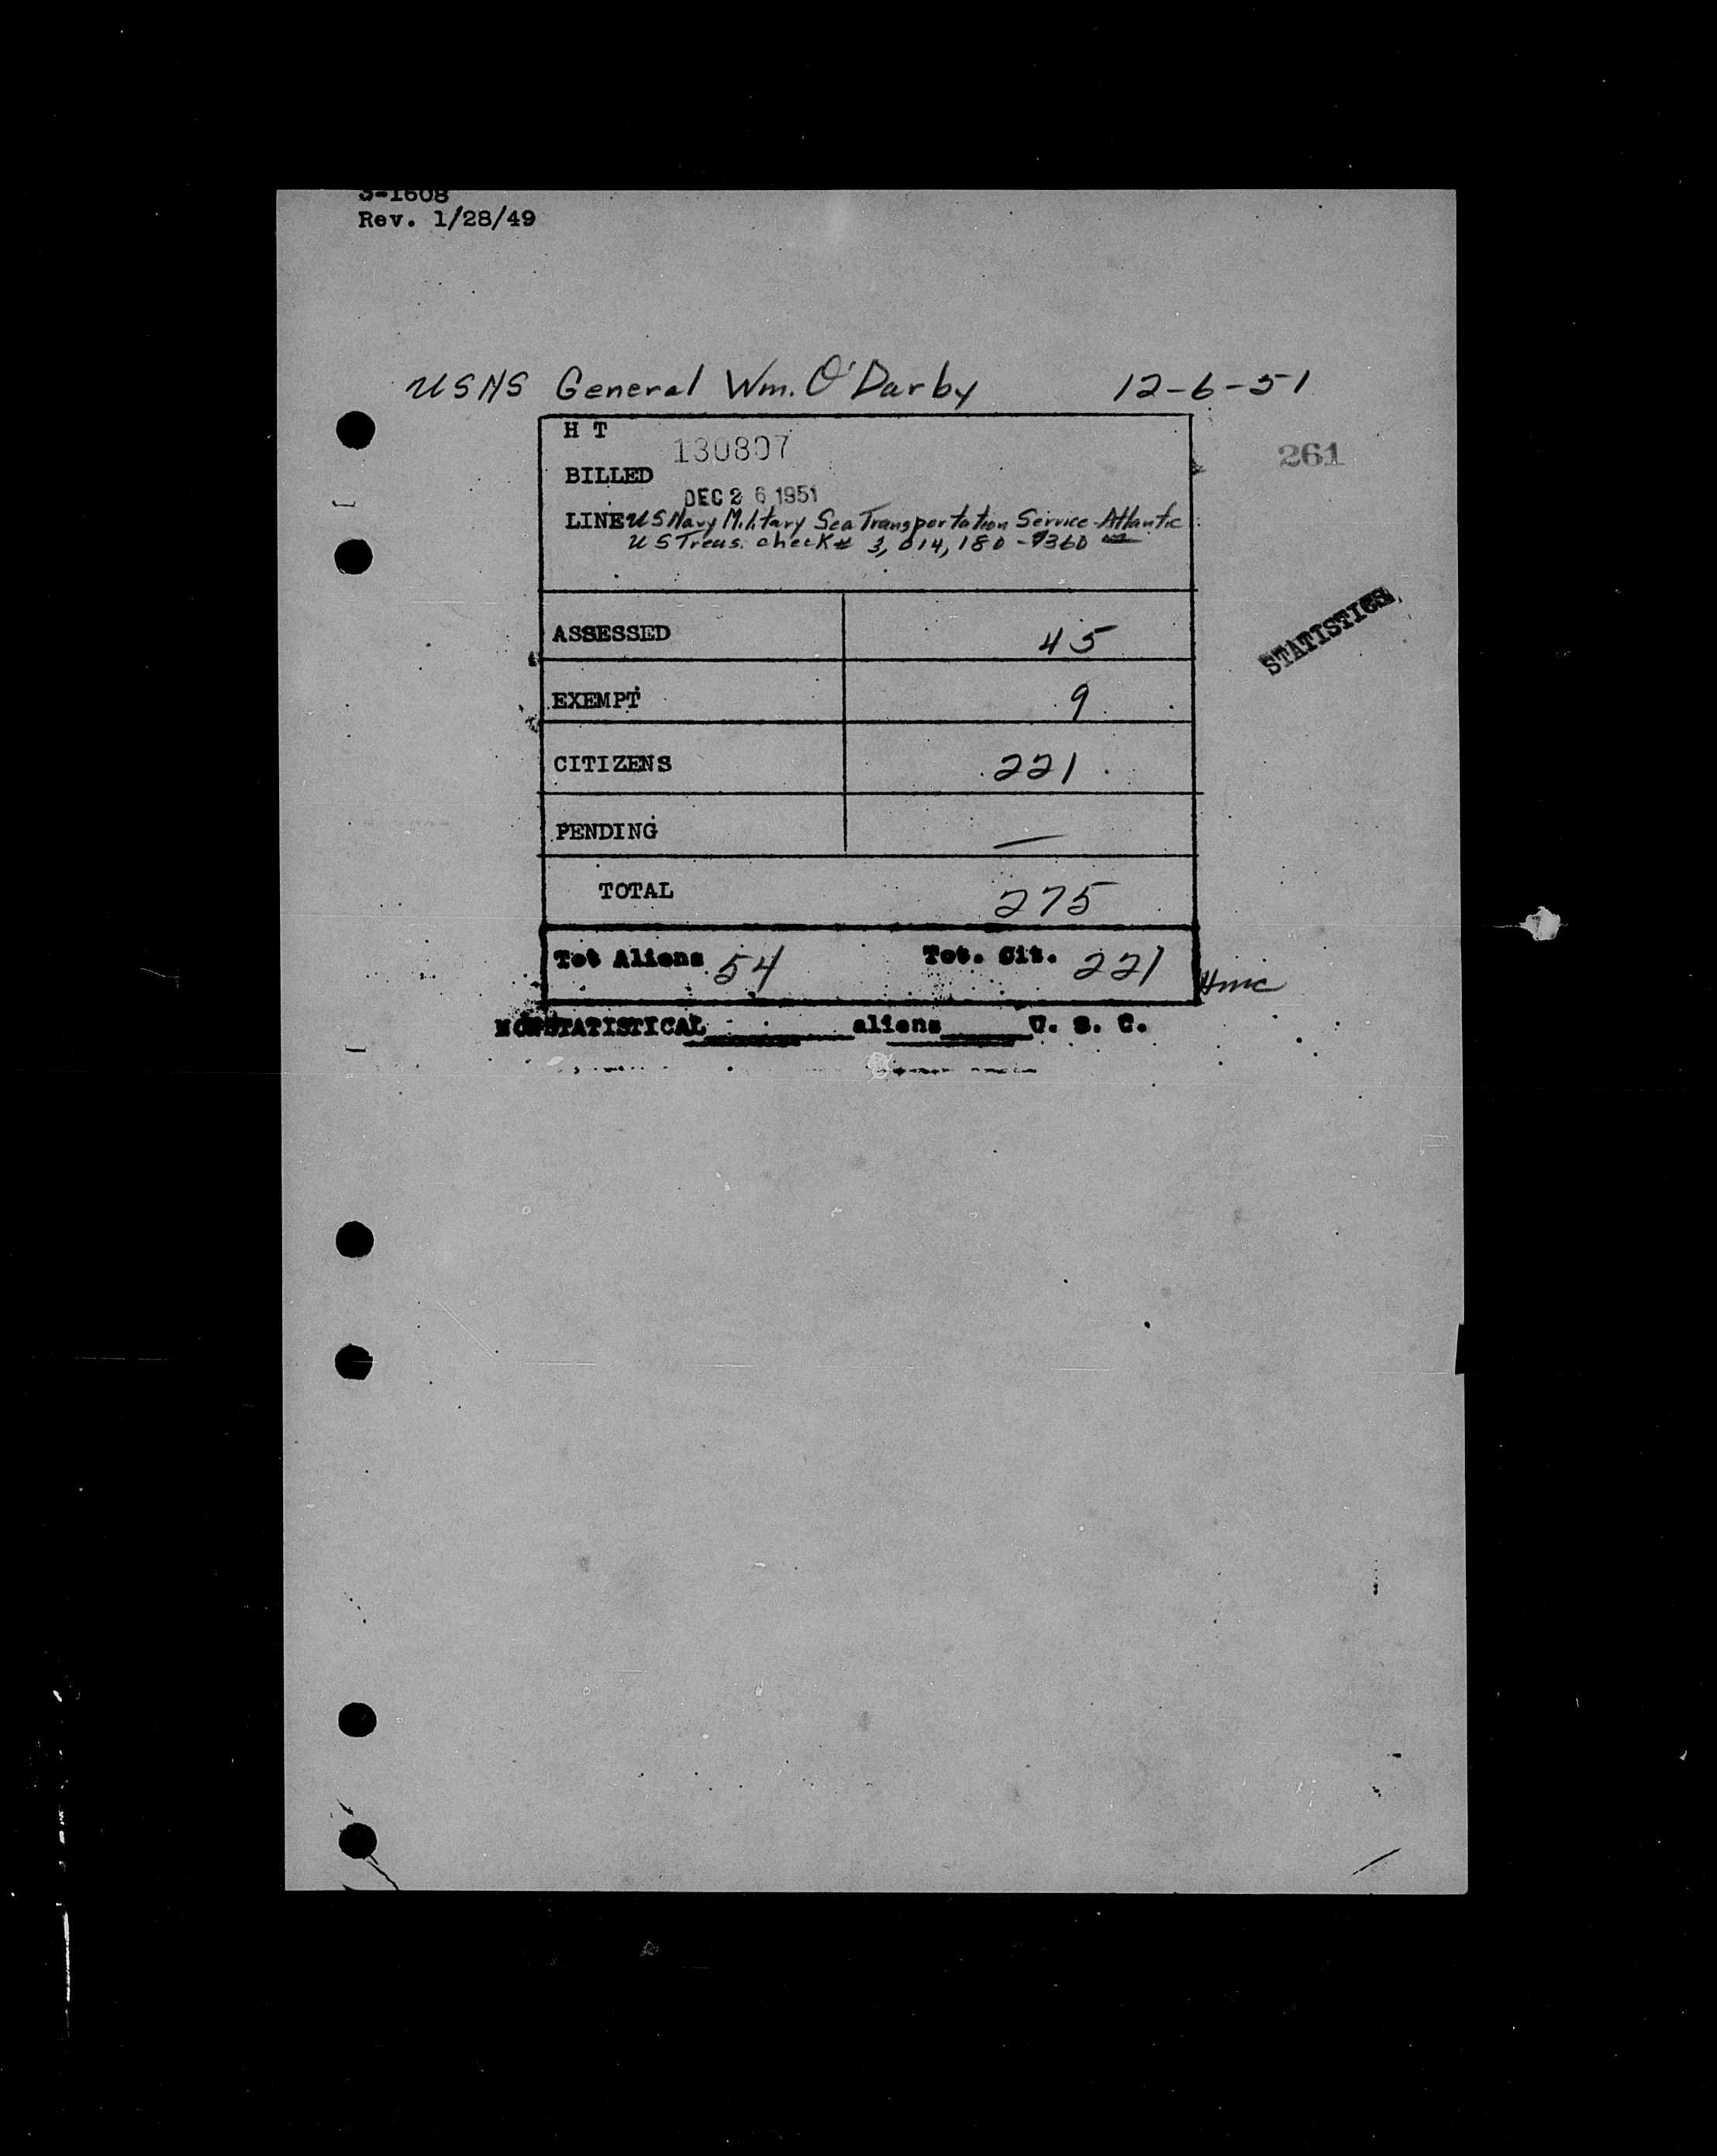 3-1608
Rev. 1/28/49
USNS General Wm. O'Darby 12-6-51
H T 130807
261
BILLED
DEC 26 1951
LINE US Navy Military Sea Transportation Service-Atlantic
US Treas. check # 3,014,180 - $360
STATISTICS
ASSESSED 45
EXEMPT 9
CITIZENS 221
PENDING —
TOTAL 275
Tot Aliens 54 Tot. Cit. 221
NONSTATISTICAL aliens U. S. C.